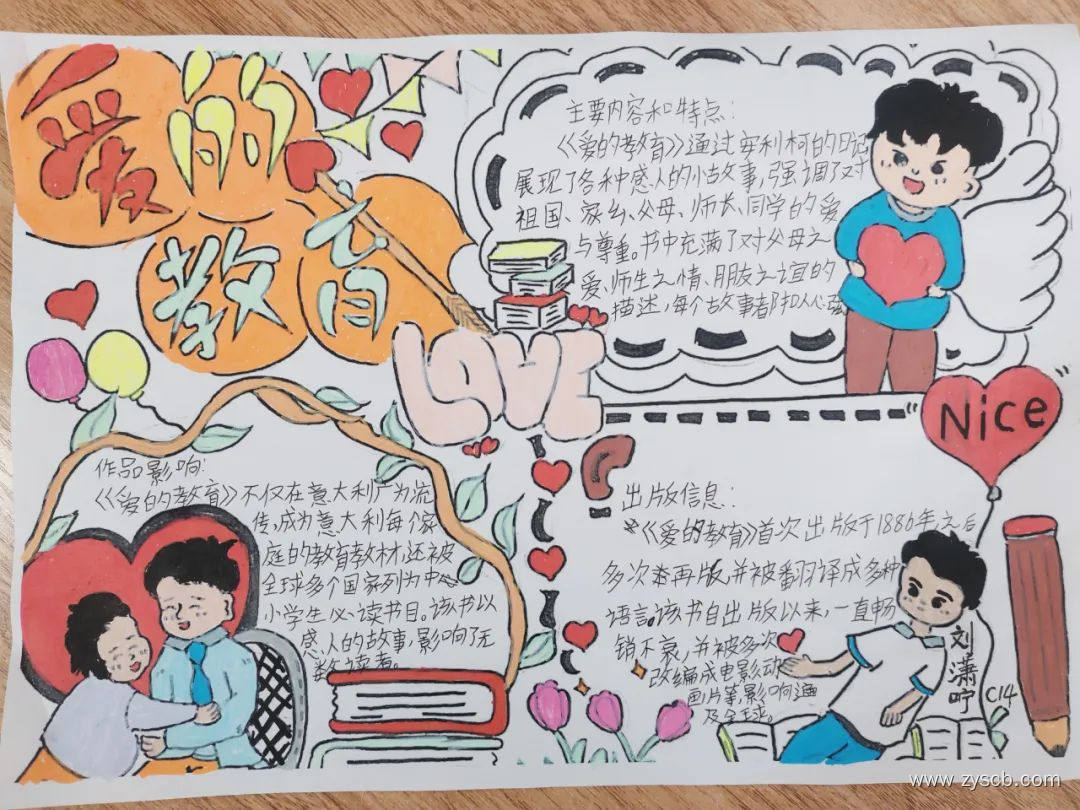 爱的
教育
主要内容和特点:
《爱的教育》通过安利柯的日记
展现了各种感人的小故事,强调了对
祖国、家乡、父母、师长、同学的爱
与尊重。书中充满了对父母之
爱、师生之情、朋友之谊的
描述,每个故事都扣人心弦
LOVE
Nice
作品影响:
《爱的教育》不仅在意大利广为流
传,成为意大利每个家
庭的教育教材,还被
全球多个国家列为中
小学生必读书目。该书以
感人的故事,影响了无
数读者。
出版信息:
《爱的教育》首次出版于1886年,之后
多次再版,并被翻译成多种
语言。该书自出版以来,一直畅
销不衰,并被多次
改编成电影动
画片等,影响遍
及全球。
刘潇
C14
www.zyscb.com